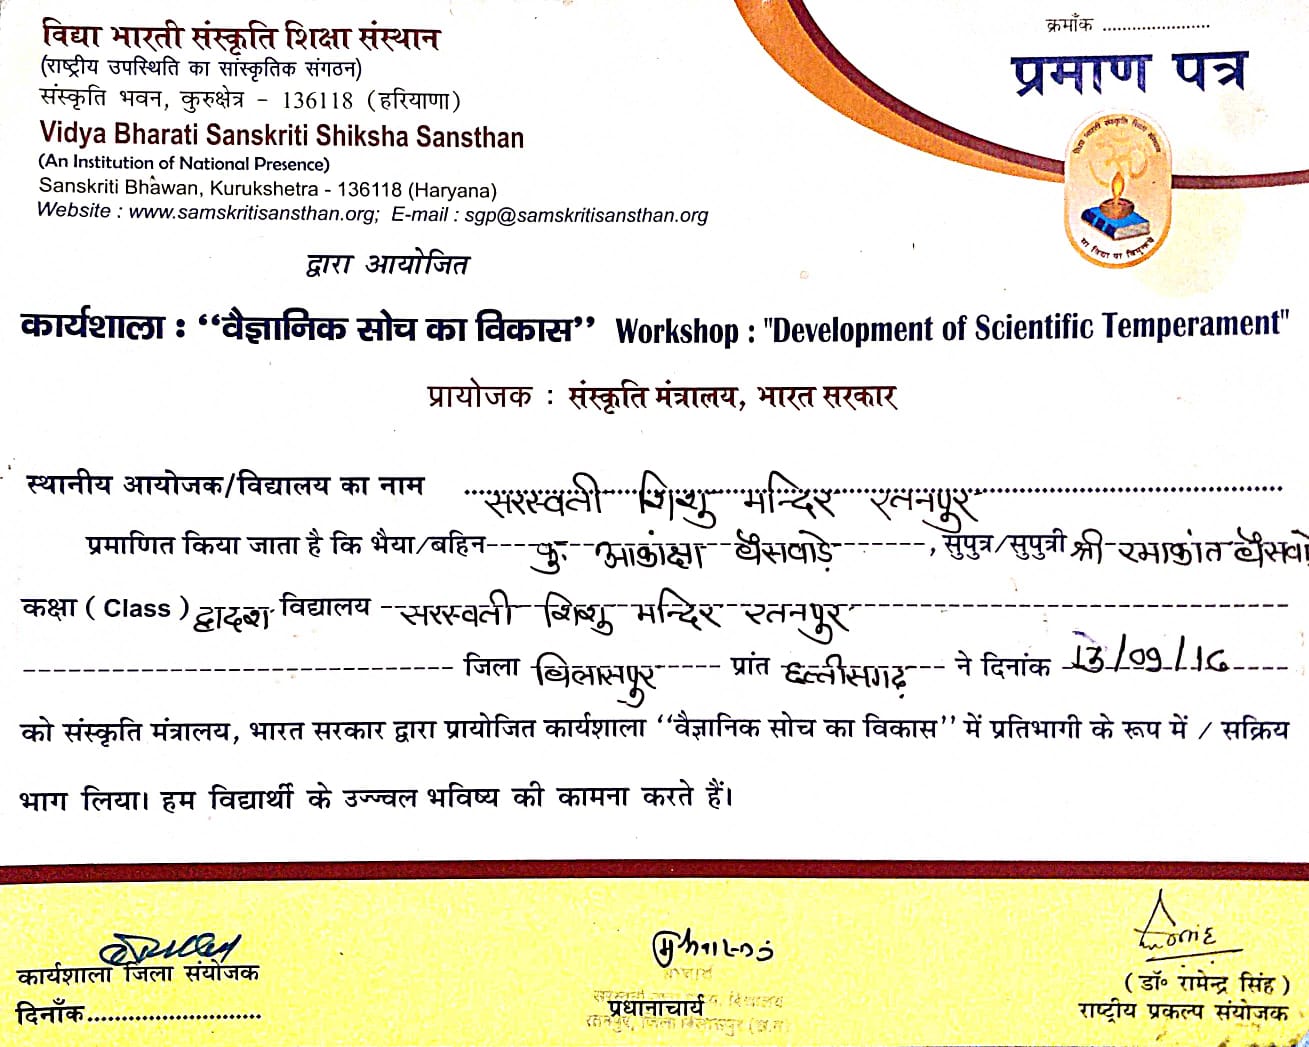 क्रमाँक ......................
विद्या भारती संस्कृति शिक्षा संस्थान
प्रमाण पत्र
(राष्ट्रीय उपस्थिति का सांस्कृतिक संगठन)
संस्कृति भवन, कुरुक्षेत्र - 136118 (हरियाणा)
Vidya Bharati Sanskriti Shiksha Sansthan
(An Institution of National Presence)
Sanskriti Bhawan, Kurukshetra - 136118 (Haryana)
Website : www.samskritisansthan.org; E-mail : sgp@samskritisansthan.org
द्वारा आयोजित
कार्यशाला : “वैज्ञानिक सोच का विकास” Workshop : "Development of Scientific Temperament"
प्रायोजक : संस्कृति मंत्रालय, भारत सरकार
स्थानीय आयोजक/विद्यालय का नाम सरस्वती शिशु मन्दिर रतनपुर
प्रमाणित किया जाता है कि भैया/बहिन कु. आकांक्षा बैसवाड़े, सुपुत्र/सुपुत्री श्री रमाकांत
कक्षा ( Class ) द्वादश विद्यालय सरस्वती शिशु मन्दिर रतनपुर
जिला बिलासपुर प्रांत छत्तीसगढ़ ने दिनांक 13/09/16
को संस्कृति मंत्रालय, भारत सरकार द्वारा प्रायोजित कार्यशाला “वैज्ञानिक सोच का विकास” में प्रतिभागी के रूप में / सक्रिय
भाग लिया। हम विद्यार्थी के उज्ज्वल भविष्य की कामना करते हैं।
कार्यशाला जिला संयोजक
दिनाँक..........................
प्रधानाचार्य
(डॉ॰ रामेन्द्र सिंह)
राष्ट्रीय प्रकल्प संयोजक